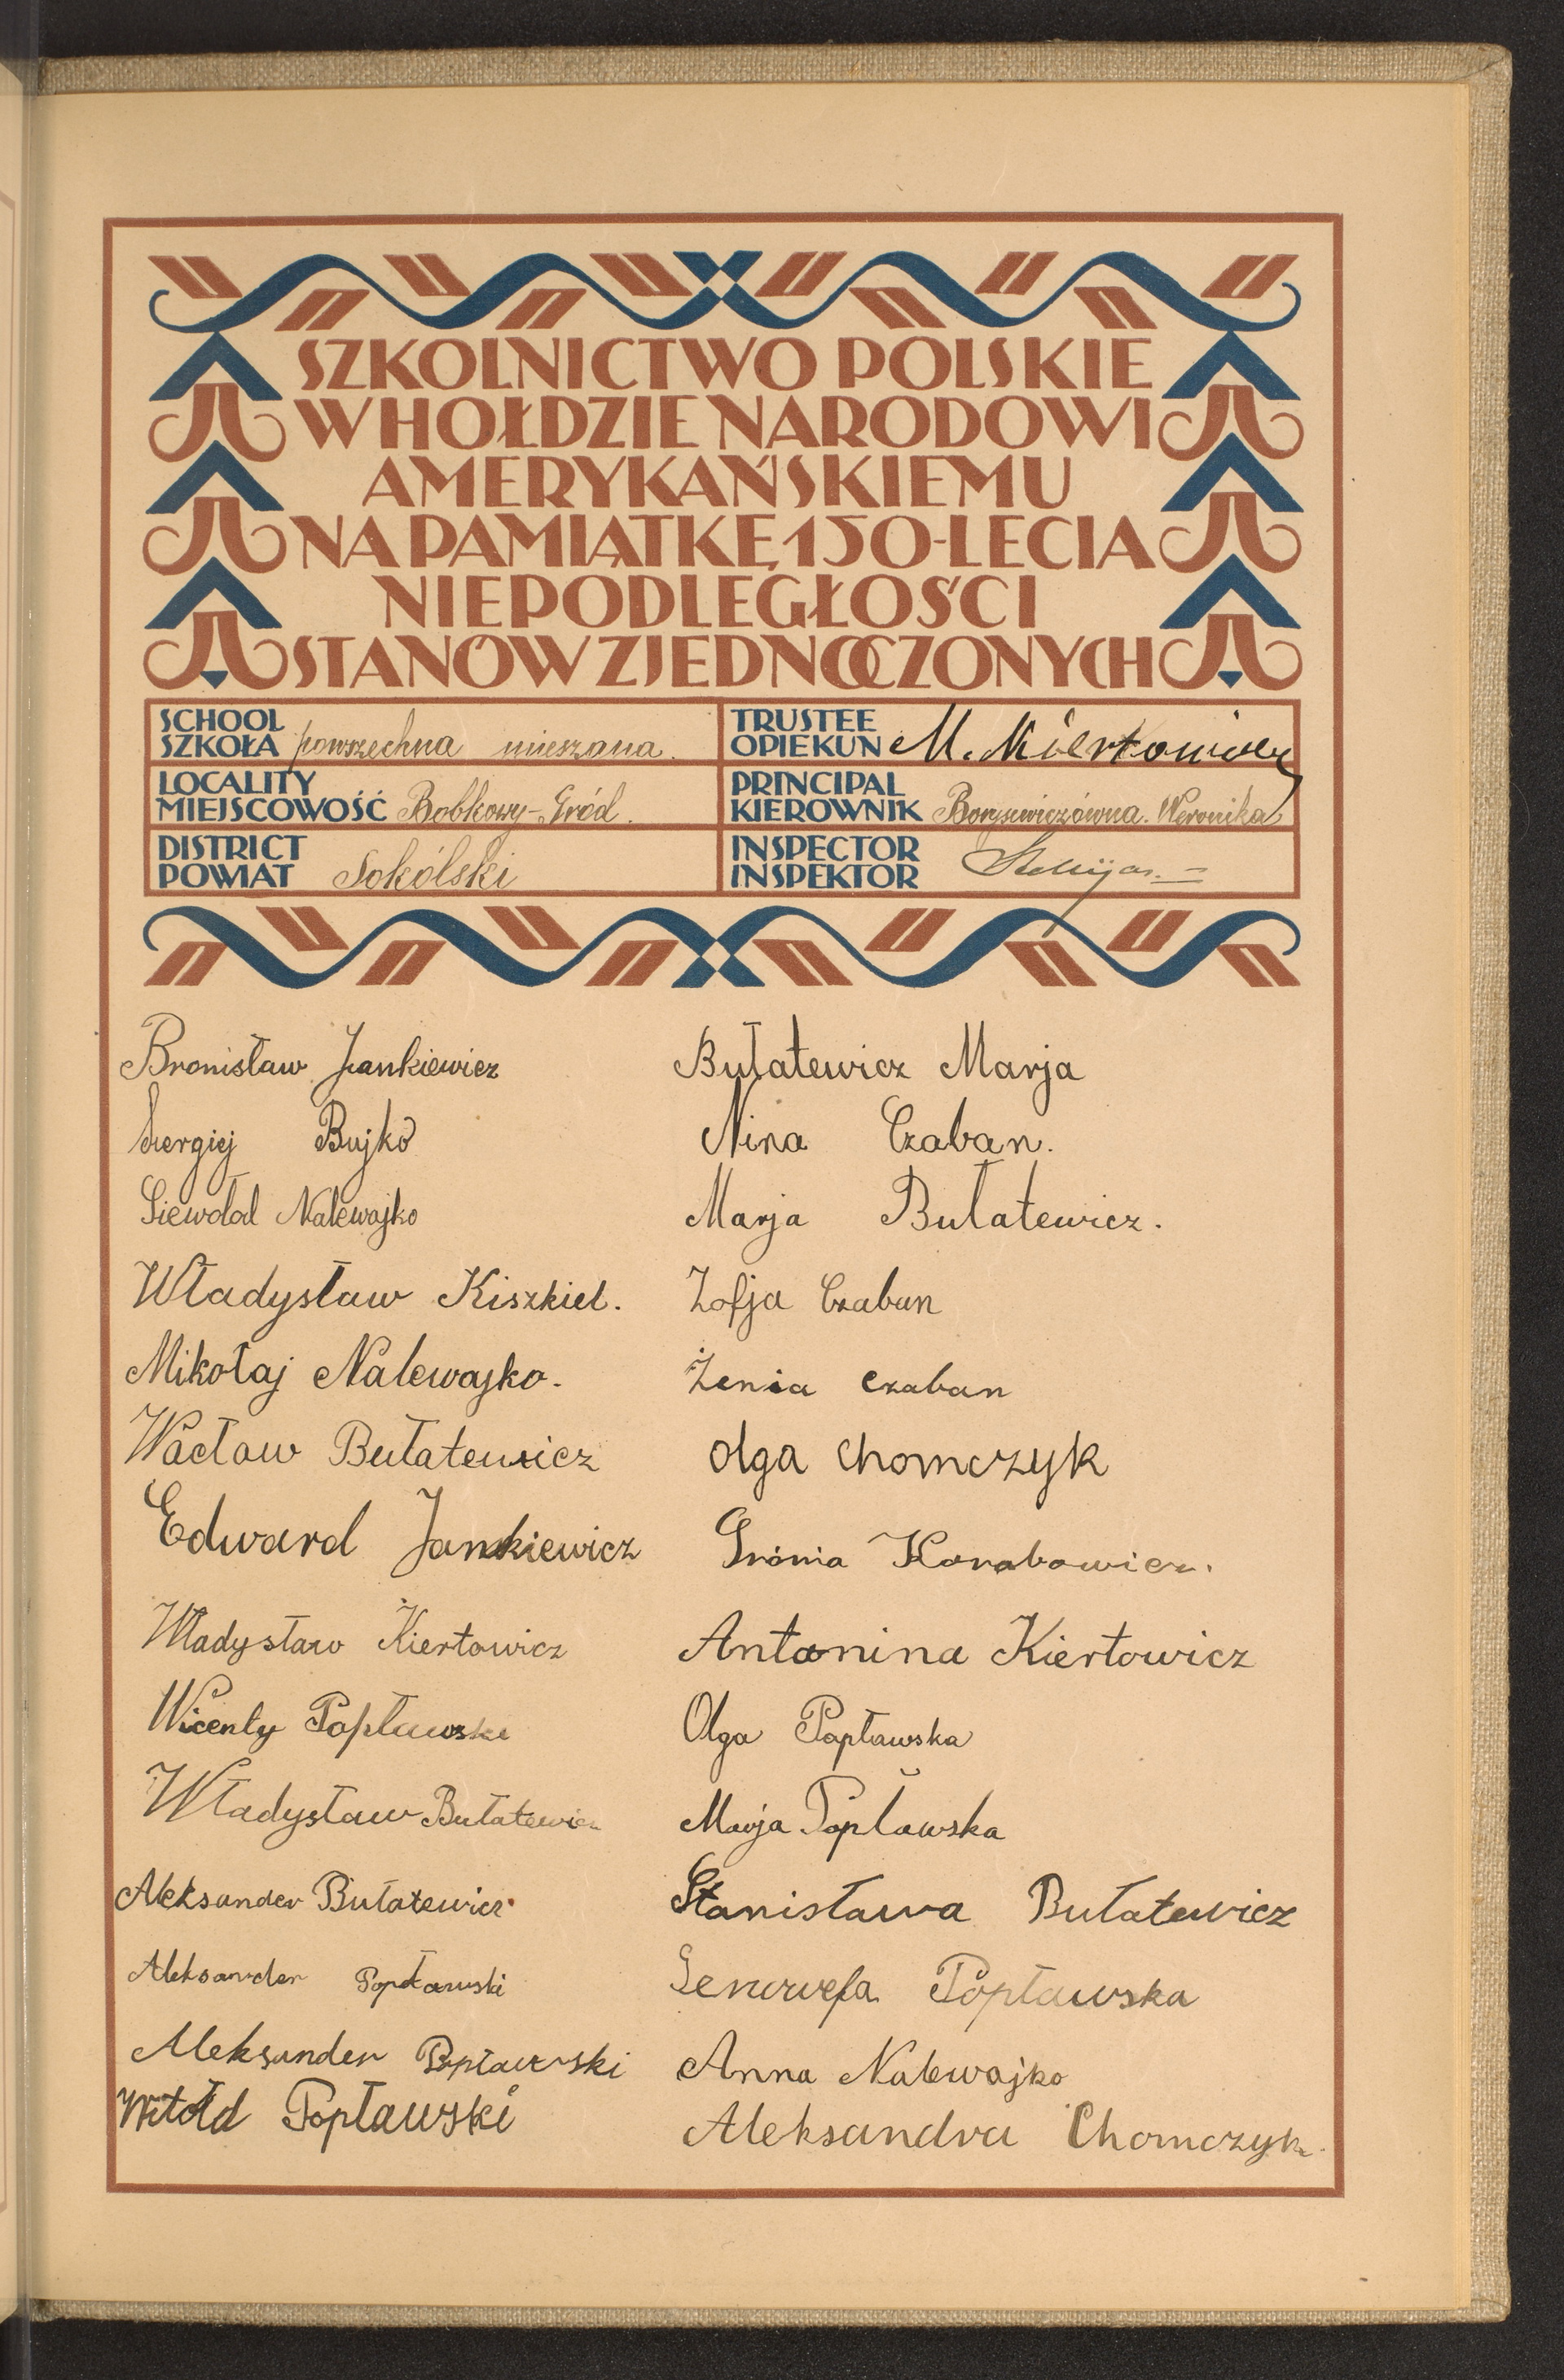 SZKOLNICTWO POLSKIE
W HOŁDZIE NARODOWI
AMERYKAŃSKIEMU
NA PAMIĄTKĘ 150-LECIA
NIEPODLEGŁOŚCI
STANÓW ZJEDNOCZONYCH
SCHOOL
SZKOŁA powszechna mieszana.
LOCALITY
MIEJSCOWOŚĆ Bobkowy-Gród.
DISTRICT
POWIAT Sokólski
TRUSTEE
OPIEKUN M.
PRINCIPAL
KIEROWNIK Borysewiczówna. Weronika
INSPECTOR
INSPEKTOR
Bronisław Jankiewicz
Siergiej Bujko
Siewołod Nalewajko
Władysław Kiszkiel.
Mikołaj Nalewajko.
Wacław Bułatewicz
Edward Jankiewicz
Władysław Kiertowicz
Wicenty Popławski
Władysław Bułatewicz
Aleksander Bułatewicz
Aleksander Popławski
Aleksander Popławski
Witołd Popławski
Bułatewicz Marja
Nina Czaban.
Marja Bułatewicz.
Zofja Czaban
Żenia czaban
Olga Chomczyk
Gronia Korabowicz.
Antonina Kiertowicz
Olga Popławska
Marja Popławska
Stanisława Bułatewicz
Genowefa Popławska
Anna Nalewajko
Aleksandra Chomczyk.